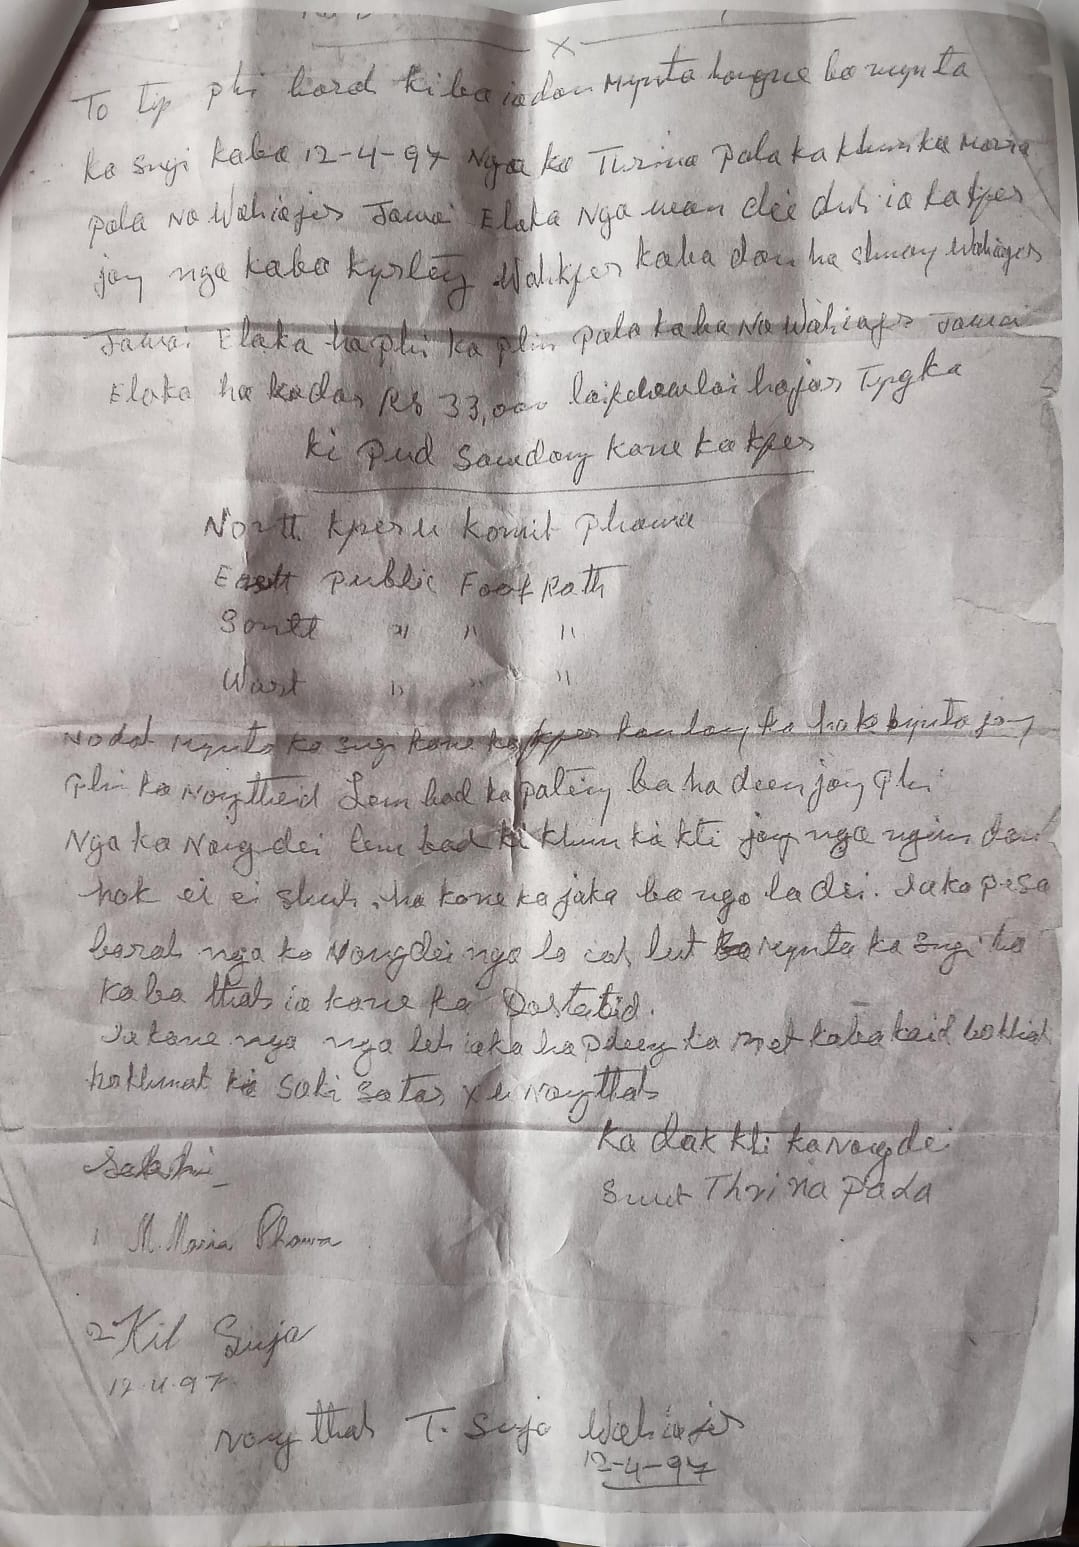 X
To tip phi barod kiba iadon Mynta hangne ba mynta
ka sngi kaba 12-4-97 Nga ka Trina Pala ka khun ka Maria
Pala No Wahiajer Jowai Elaka Nga wan die duh ia ka kper
jong nga kaba kyrteng Wahkper kaba don ha shnong Wahiajer
Jowai Elaka ha phi ka phin Pala kaba No Wahiajer Jowai
Elaka ha ka dor Rs 33,000 laiphewlai hajar Tyngka
ki pud Sawdong kane ka kper
North kper u Komit Phawa
East Public Foot Path
South " " "
West " " "
Nodat mynta ka sngi kane ka kper kan long ka hok bynta jong
phi ka Nongthied Lem bad ka pateng ba ha dien jong Phi
Nga ka Nongdei lem bad ki khun ki kti jong nga ngim don
hok ei ei shuh, ha kane ka jaka ba nga la dei. Ia ka pesa
baroh nga ka Nongdei nga la ioh lut Mynta ka sngi ha
kaba thoh ia kane ka Dostabid.
Ia kane nga nga leh iaka ha pdeng ka met kaba kaid bakhiat
hakhmat ki Saki Satar x u Nongthoh
Ka dak kti ka Nongdei
Smt Thrina Pada
Sakhi
1 M. Maria Phawa
2 Kil Suja
12.4.97
Nongthoh T. Suja Wahiajer
12-4-97